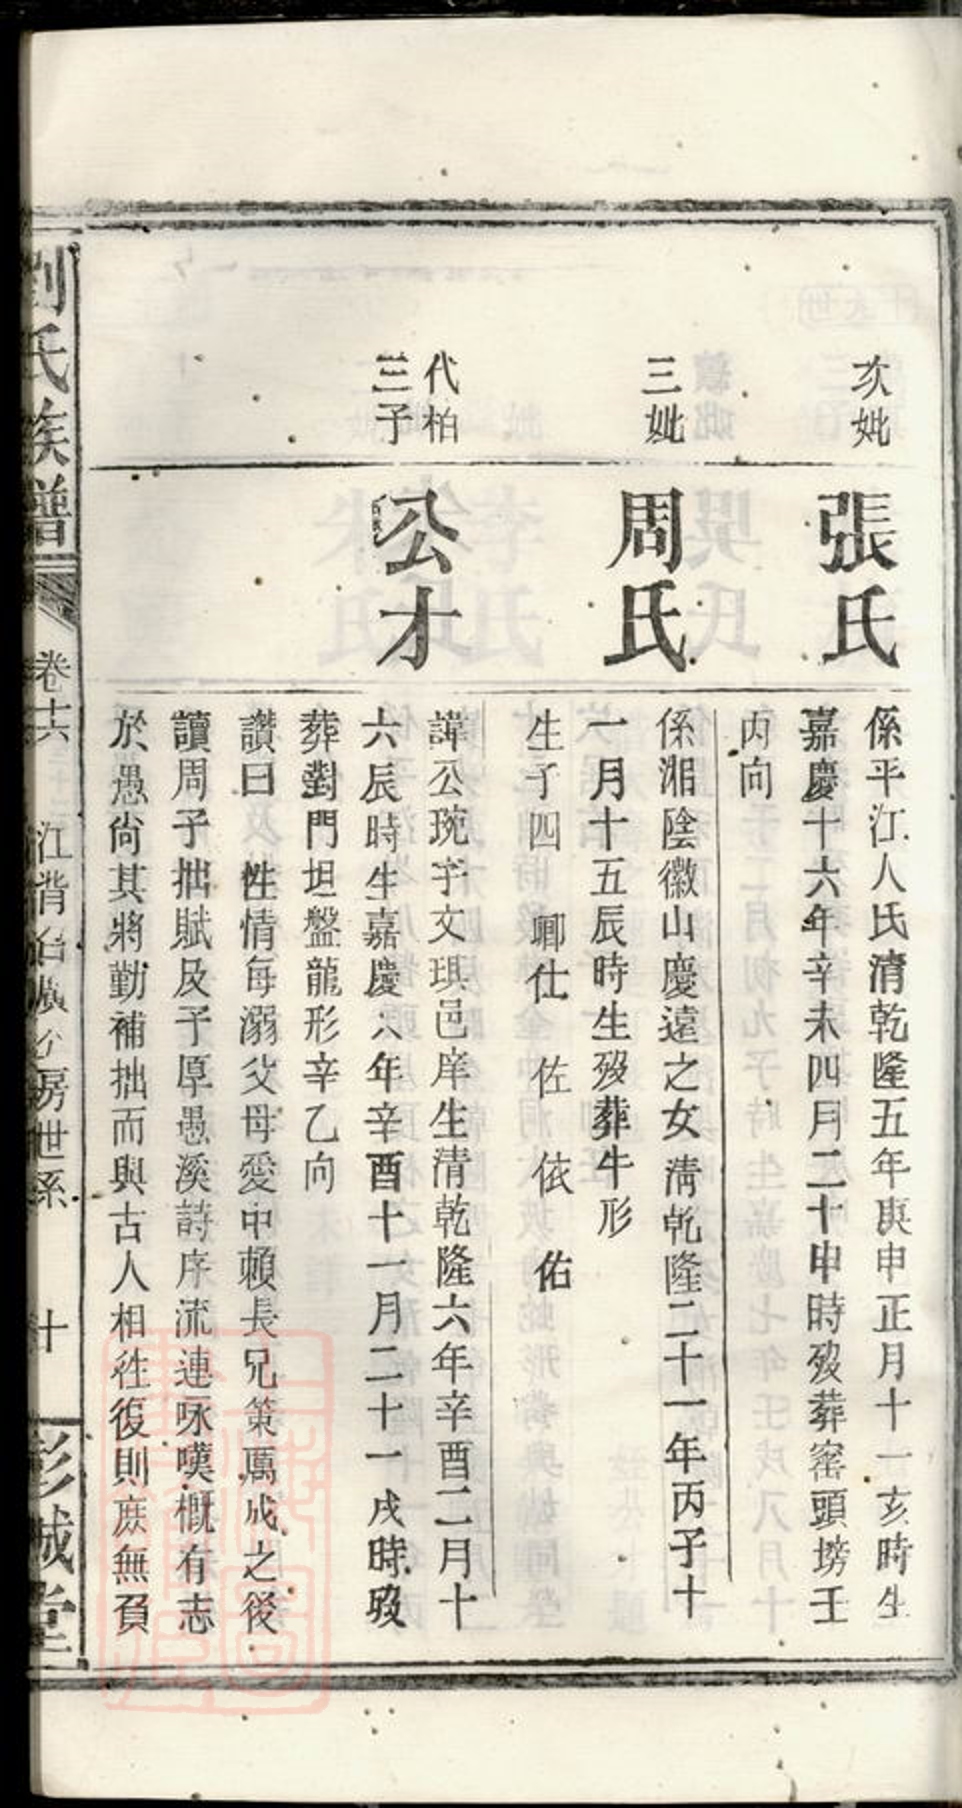 次妣
張氏
係平江人氏清乾隆五年庚申正月十一亥時生
嘉慶十六年辛未四月二十申時歿葬窰頭塝壬
丙向
三妣
周氏
係湘陰徽山慶遠之女淸乾隆二十一年丙子十
一月十五辰時生歿葬牛形
生子四 卿仕 佐 依 佑
代柏
三子
公才
諱公琬字文琪邑庠生清乾隆六年辛酉二月十
六辰時生嘉慶六年辛酉十一月二十一戌時歿
葬對門坦盤龍形辛乙向
讚曰 性情每溺父母愛中賴長兄策厲成之後
讀周子拙賦及子厚愚溪詩序流連咏嘆慨有志
於愚尙其將勤補拙而與古人相往復則庶無頁
劉氏族譜
卷十六
房世系
十
彭城堂